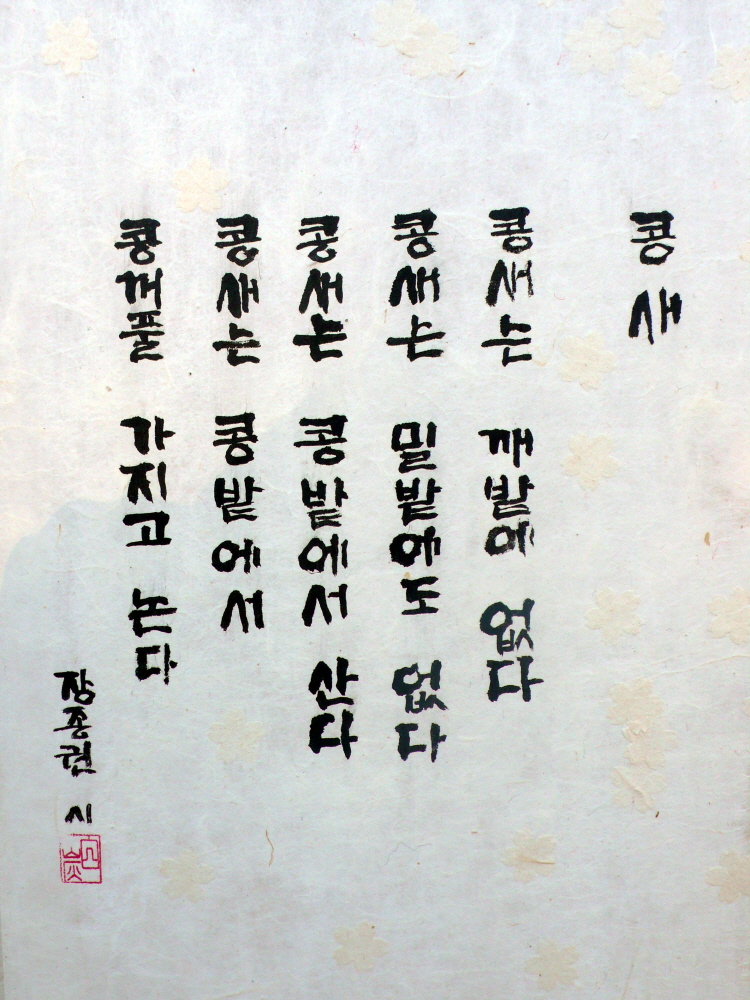 콩새
콩새는 깨밭에 없다
콩새는 밀밭에도 없다
콩새는 콩밭에서 산다
콩새는 콩밭에서
콩꺼풀 가지고 논다
장종권 시